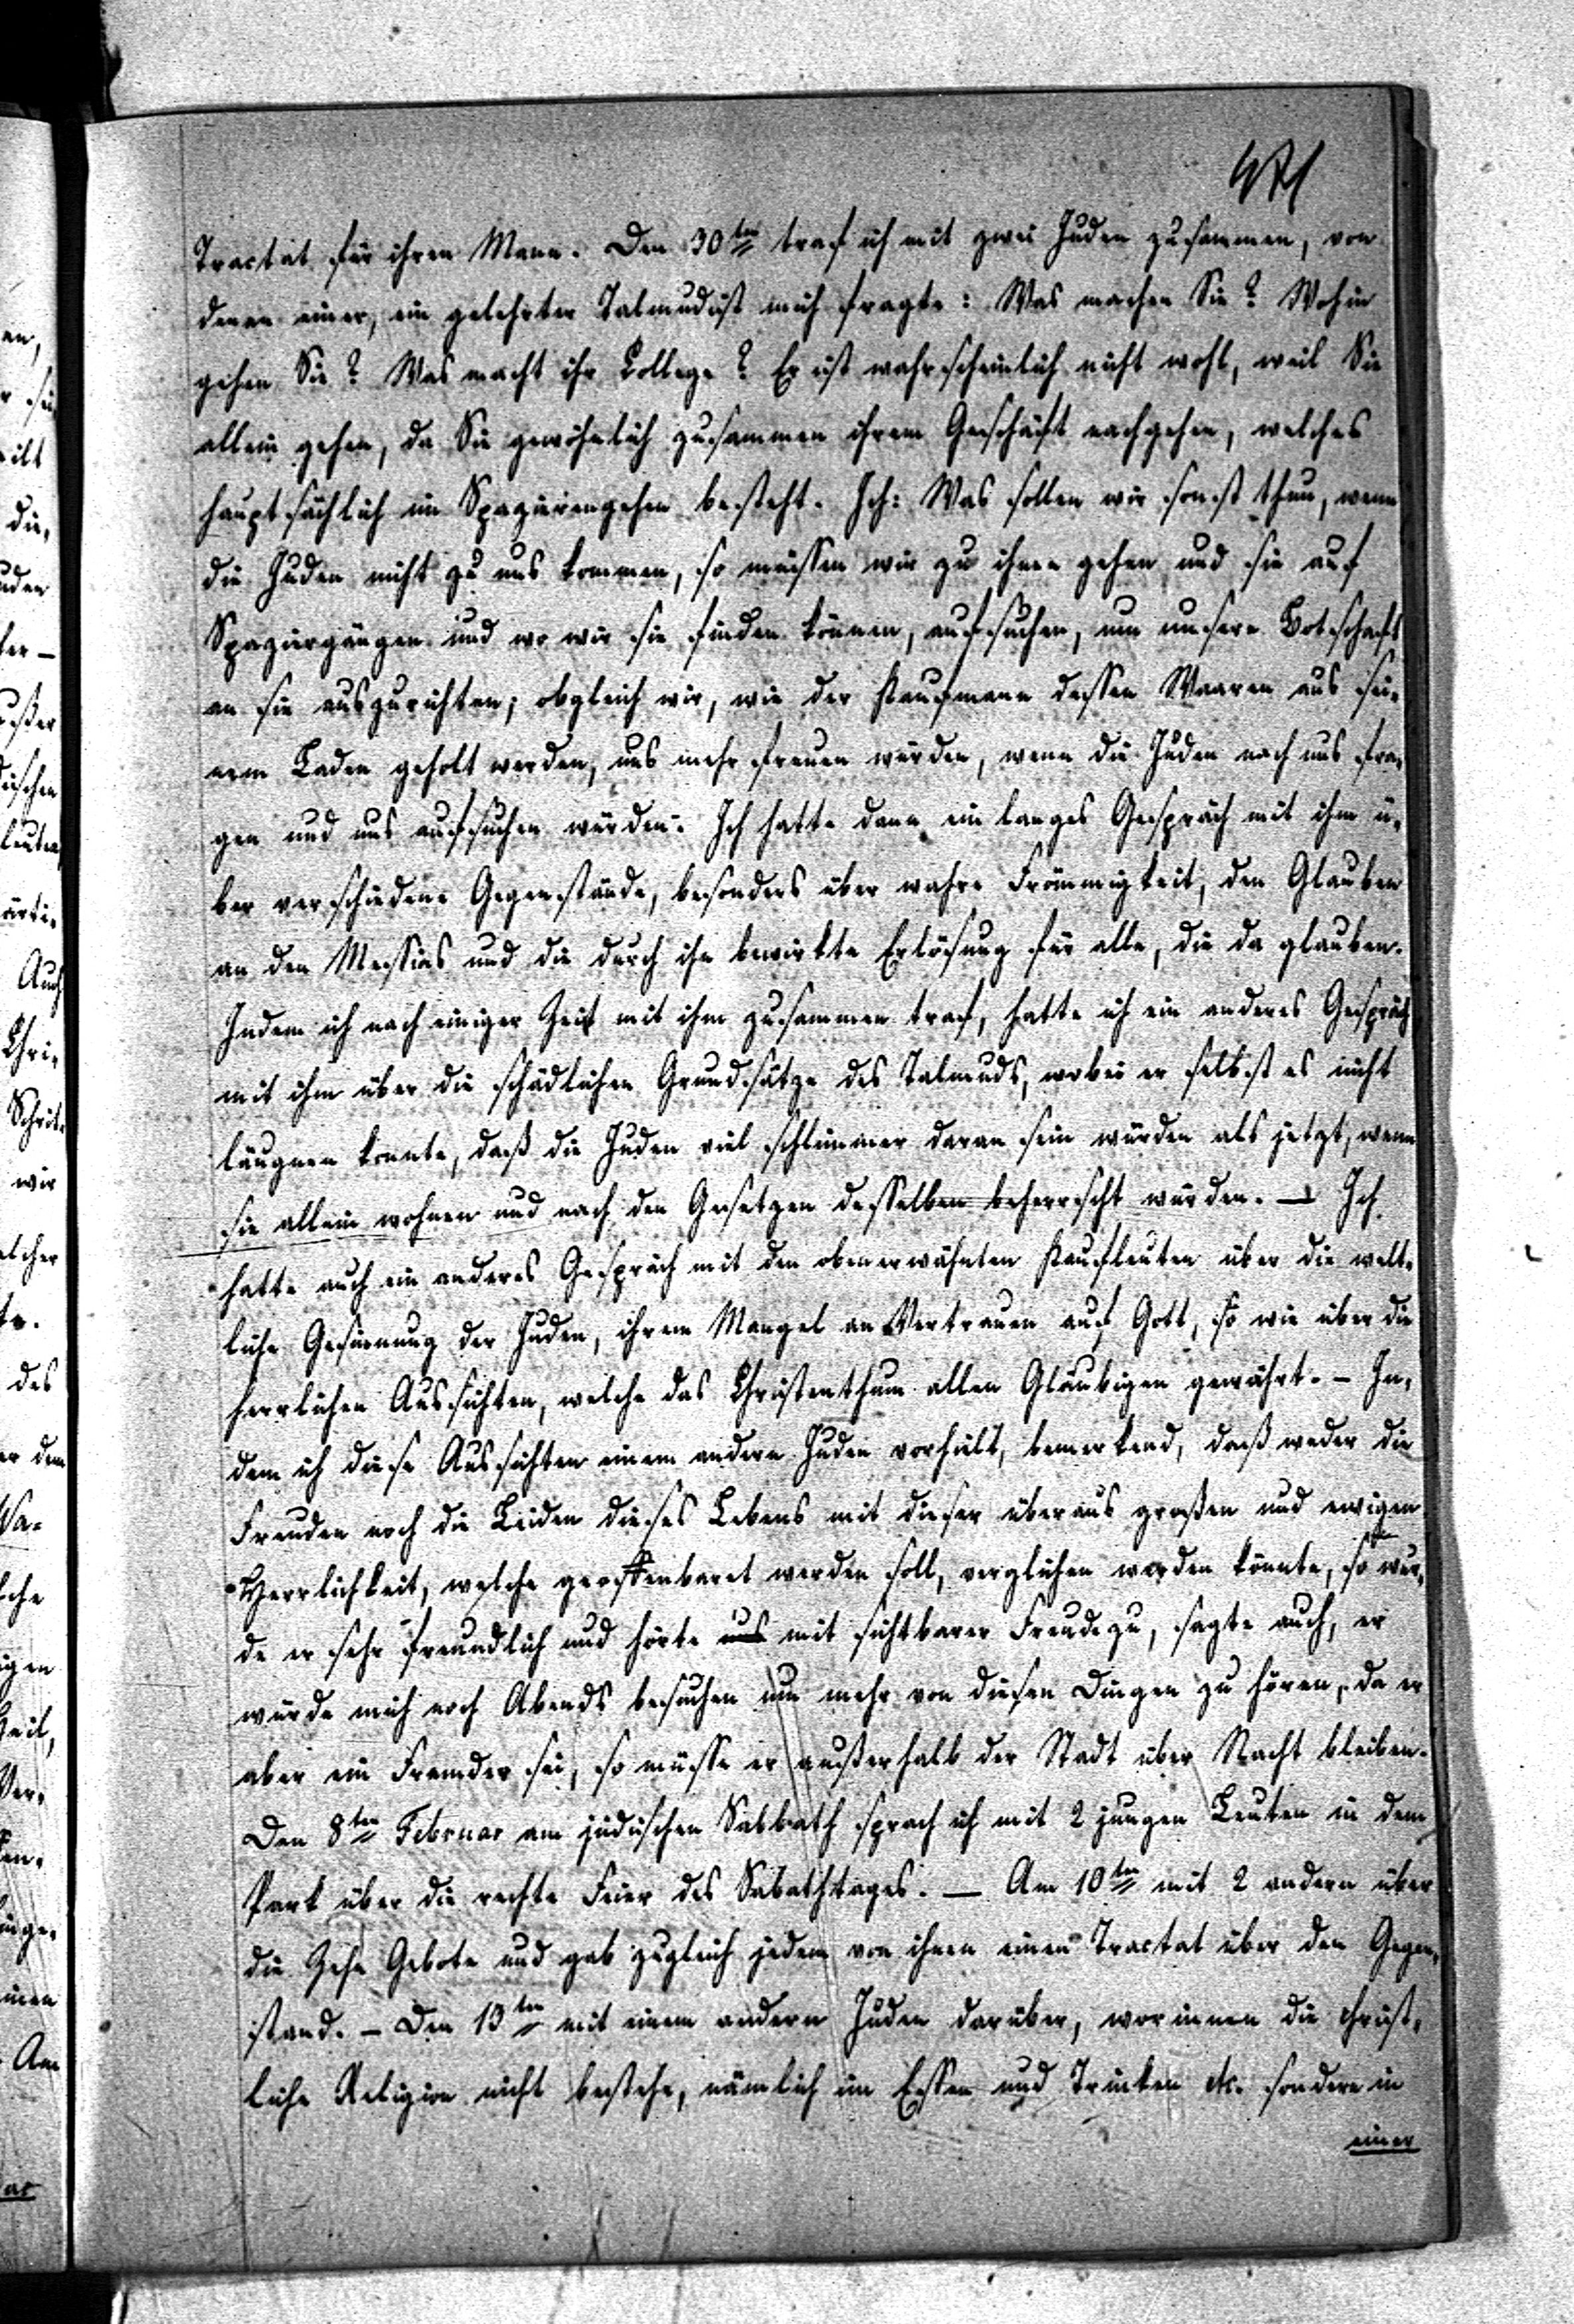 471
Tractat für ihren Mann. Den 30ten traf ich mit zwei Juden zusammen, von
denen einer, ein gelehrter Talmudist mich fragte: Was machen Sie? Wohin
gehen Sie? Was macht ihr College? Er ist wahrscheinlich nicht wohl, weil Sie
allein gehen, da Sie gewöhnlich zusammen ihrem Geschäft nachgehen, welches
hauptsächlich im Spazierengehen besteht. Ich: Was sollen wir sonst thun, wenn
die Juden nicht zu uns kommen, so müssen wir zu ihnen gehen und sie auf
Spaziergängen und wo wir sie finden können, aufsuchen, um unsere Botschaft
an sie auszurichten; obgleich wir, wie der Kaufmann dessen Waaren aus sei-
nem Laden geholt werden, uns mehr freuen würden, wenn die Juden nach uns fra-
gen und uns aufsuchen würden. Ich hatte dann ein langes Gespräch mit ihm ü-
ber verschiedene Gegenstände, besonders über wahre Frömmigkeit, den Glauben
an den Messias und die durch ihn bewirkte Erlösung für alle, die da glauben.
Indem ich nach einiger Zeit mit ihm zusammen traf, hatte ich ein anderes Gespräch
mit ihm über die schädlichen Grundsätze des Talmuds, wobei er selbst es nicht
läugnen konnte, daß die Juden viel schlimmer daran sein würden als jetzt, wenn
sie allein wohnen und nach den Gesetzen desselben beherrscht würden. — Ich
hatte auch ein anderes Gespräch mit den obenerwähnten Kaufleuten über die welt-
liche Gesinnung der Juden, ihrem Mangel an Vertrauen auf Gott, so wie über die
herrlichen Aussichten, welche das Christenthum allen Gläubigen gewährt. — In-
dem ich diese Aussichten einem andern Juden vorhielt, bemerkend, daß weder die
Freuden noch die Leiden dieses Lebens mit dieser überaus großen und ewigen
Herrlichkeit, welche geoffenbaret werden soll, verglichen werden könnte, so wur-
de er sehr freundlich und hörte uns mit sichtbarer Freude zu, sagte auch, er
würde mich noch Abends besuchen um mehr von diesen Dingen zu hören, da er
aber ein Fremder sei, so müsse er außerhalb der Stadt über Nacht bleiben.
Den 8ten Februar am jüdischen Sabbath sprach ich mit 2 jungen Leuten in dem
Park über die rechte Feier des Sabathtages. — Am 10ten mit 2 andern über
die Zehn Gebote und gab zugleich jedem von ihnen einen Tractat über den Gegen-
stand. — Den 13ten mit einem andern Juden darüber, worinnen die christ-
liche Religion nicht bestehe, nämlich im Essen und Trinken etc. sondern in
einer